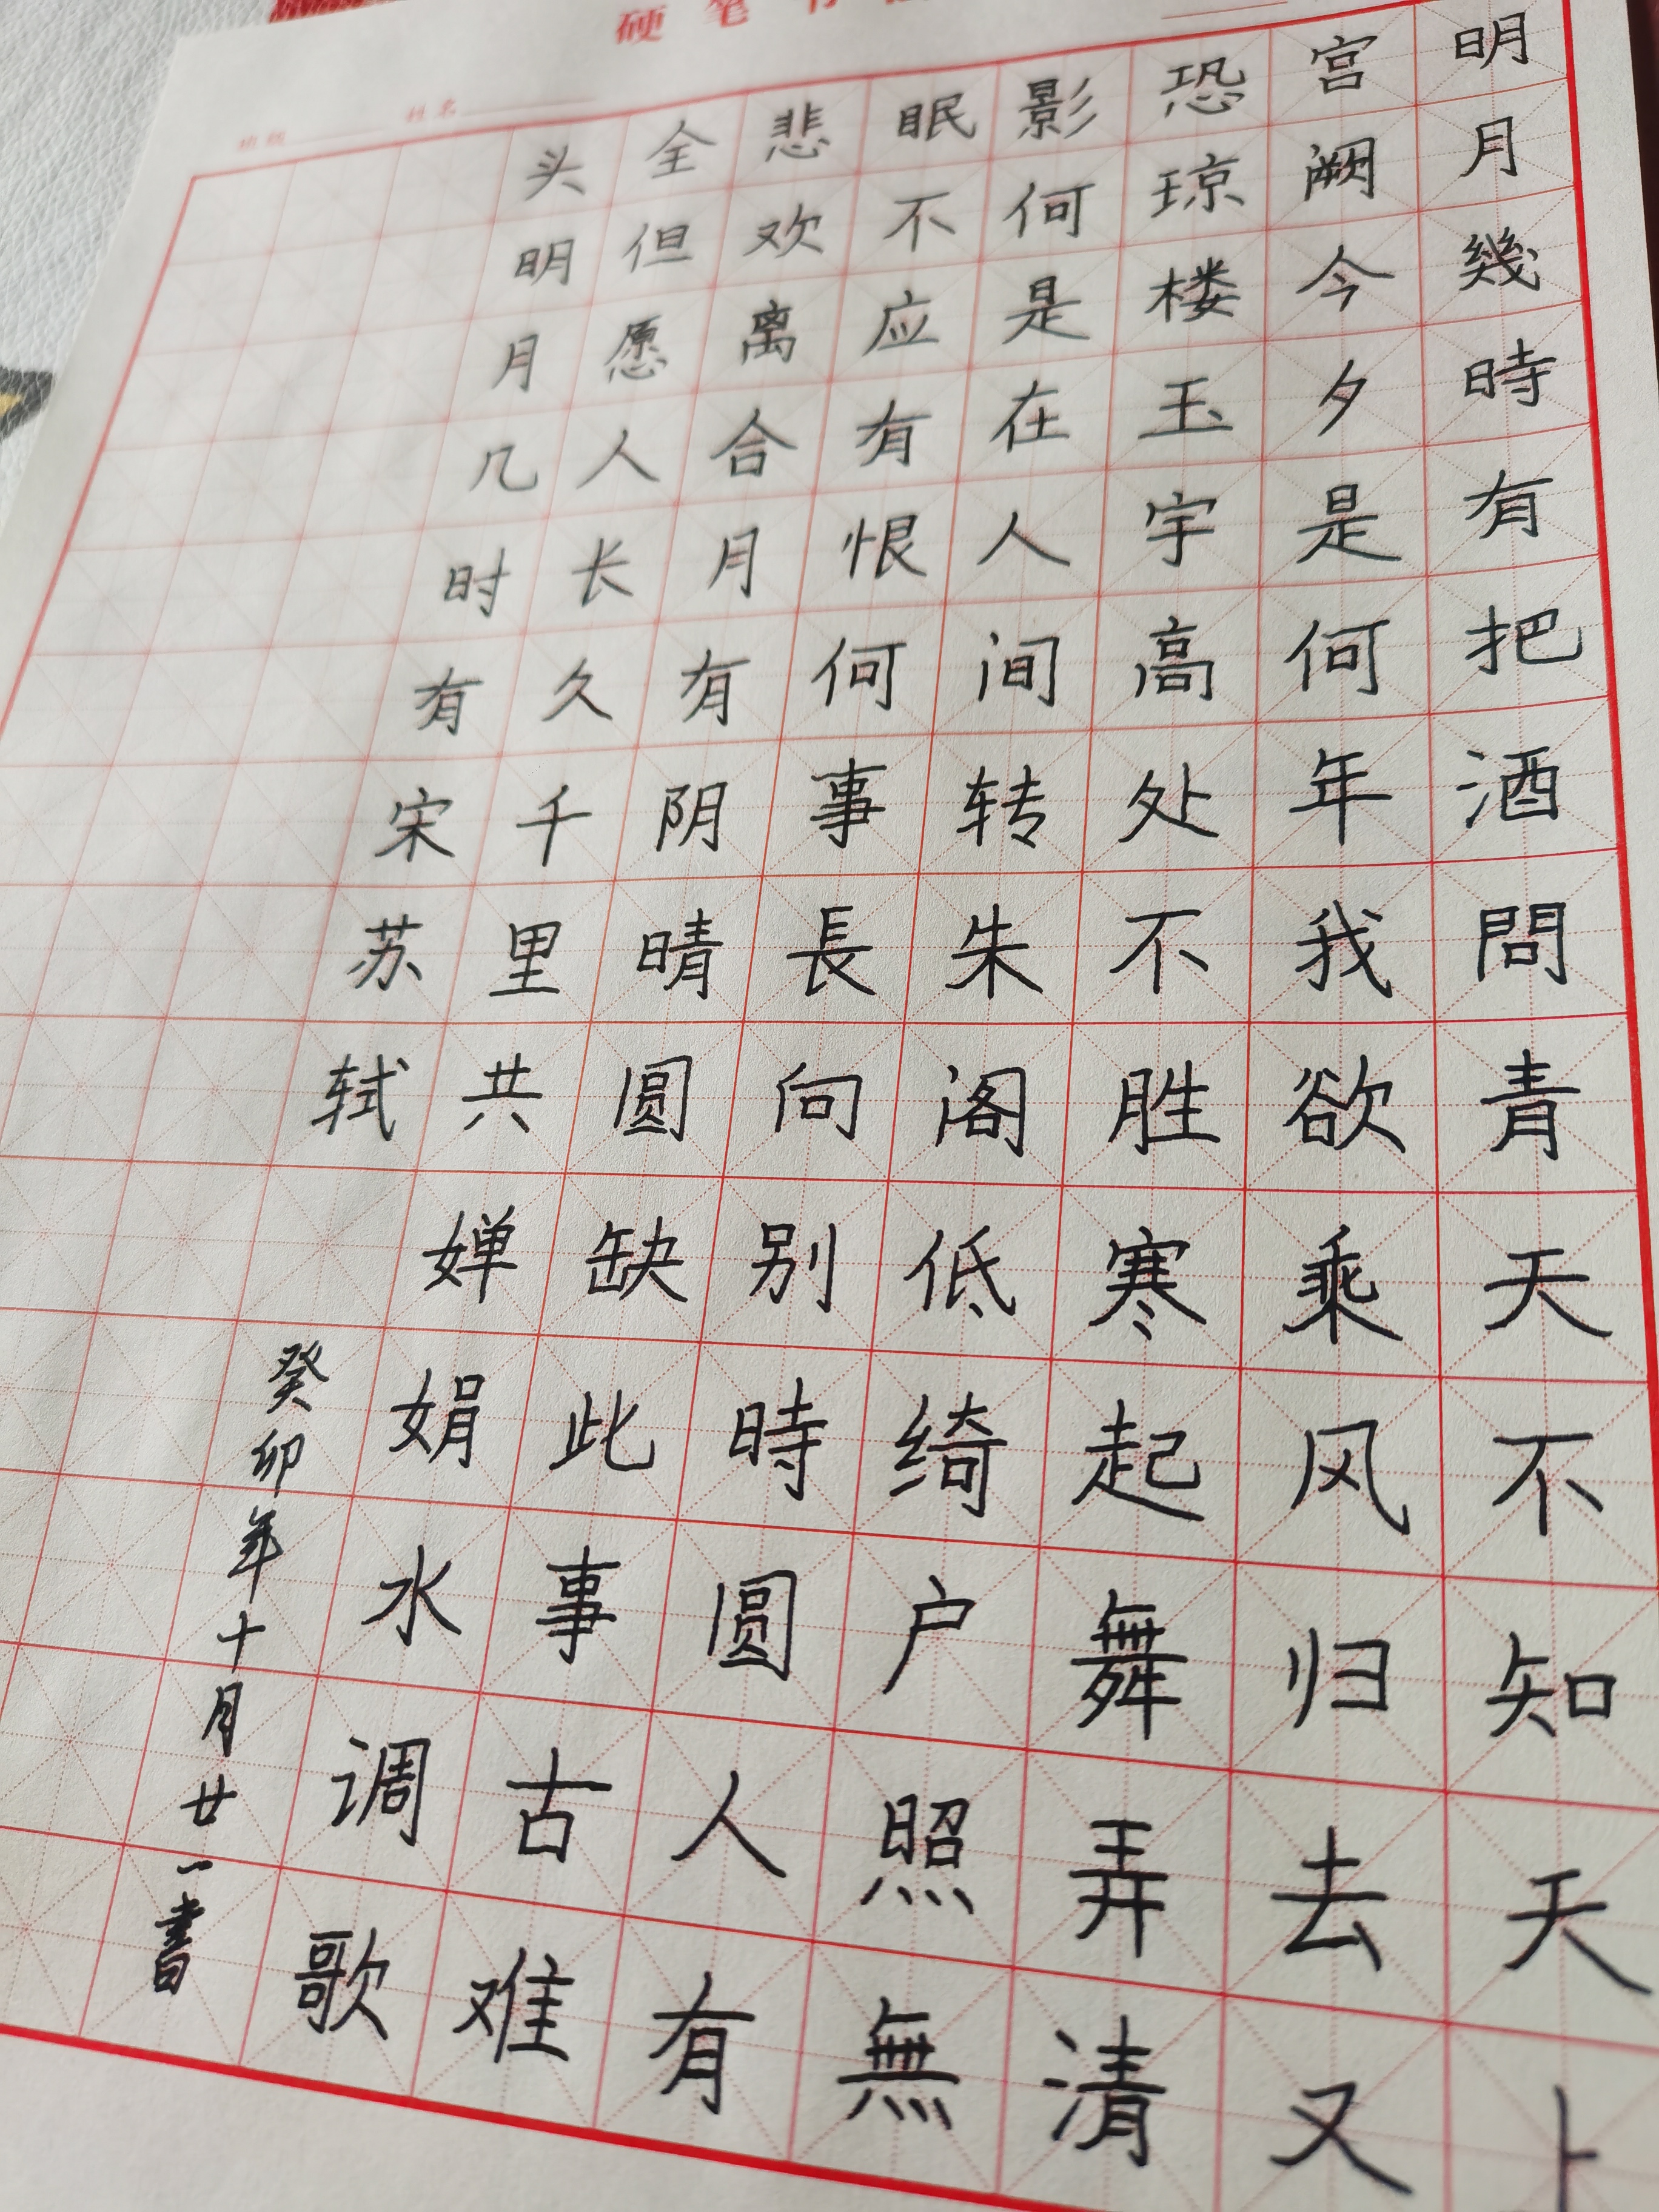 硬笔书
班级 姓名
明月幾時有把酒問青天不知天上
宫阙今夕是何年我欲乘风归去又
恐琼楼玉宇高处不胜寒起舞弄清
影何是在人间转朱阁低绮户照無
眠不应有恨何事長向别時圆人有
悲欢离合月有阴晴圆缺此事古难
全但愿人长久千里共婵娟水调歌
头明月几时有宋苏轼
癸卯年十月廿一書